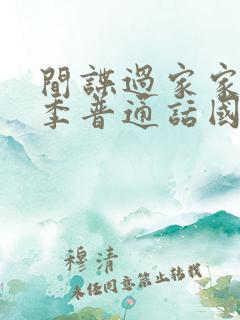 間諜過家家
季普通話國
穆清
未經同意禁止轉載